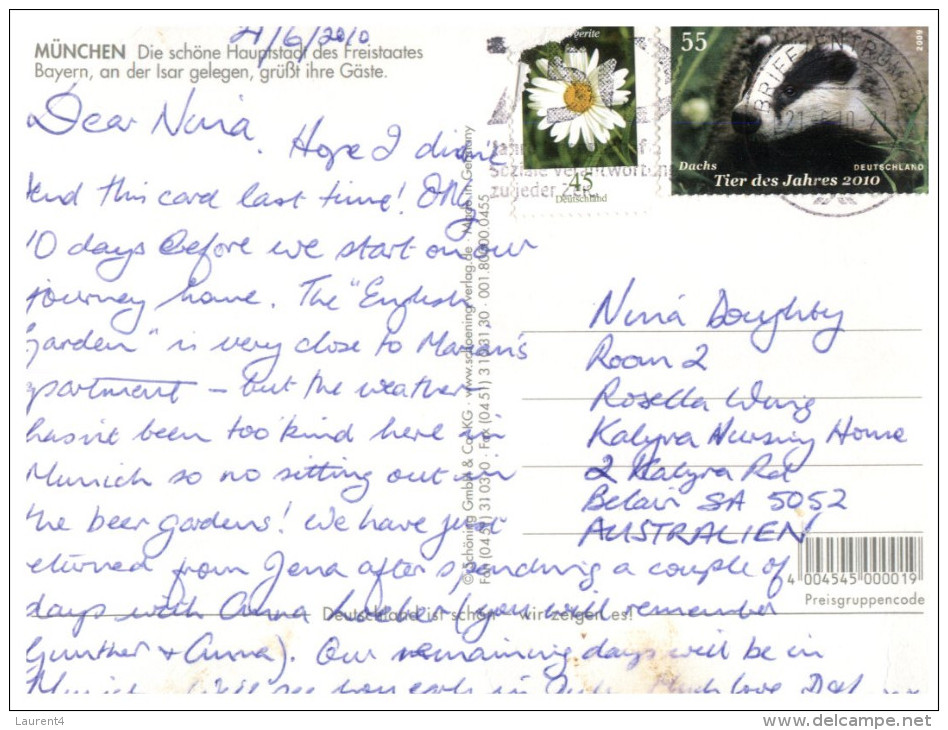 21/6/2010
MÜNCHEN Die schöne Hauptstadt des Freistaates
Bayern, an der Isar gelegen, grüßt ihre Gäste.
Dear Nina,
Hope I didn't
send this card last time! Only
10 days before we start on our
journey home. The "English
Garden" is very close to Marion's
apartment – but the weather
hasn't been too kind here in
Munich so no sitting out in
the beer gardens! We have just
returned from Jena after spending a couple of
days with Anna (you will remember
Gunther + Anna). Our remaining days will be in
Munich. We'll see you early in July. Much love
Nina Doughty
Room 2
Rosella Wing
Kalyra Nursing Home
2 Kalyra Rd
Belair SA 5052
AUSTRALIEN
© Schöning GmbH & Co. KG · www.schoening-verlag.de · Made in Germany
Fon (04 51) 3 10 30 · Fax (04 51) 3 10 33 30 · 001.80000.0455
Deutschland ist schön – wir zeigen es!
45
Deutschland
55
2009
Dachs
DEUTSCHLAND
Tier des Jahres 2010
BRIEFZENTRUM
Soziale Verantwortung
zu jeder Zeit
4 004545 000019
Preisgruppencode
Laurent4
www.delcampe.net